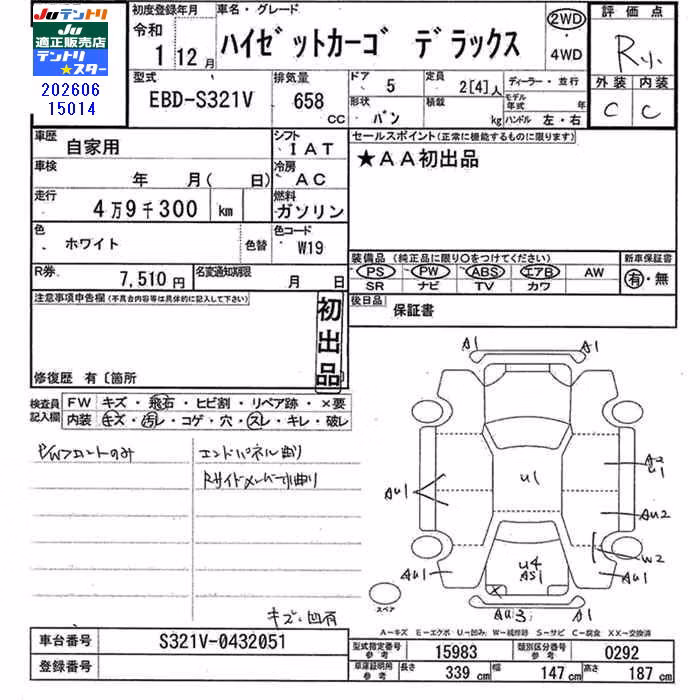 Juテントリ
Ju
適正販売店
テントリ
★スター
202606
15014
初度登録年月
令和
1 12月
車名・グレード
ハイゼットカーゴ デラックス
2WD
・
4WD
評価点
R小
外装 内装
C C
型式
EBD-S321V
排気量
658
CC
ドア
5
形状
バン
定員
2[4]人
積載
kg
ディーラー・並行
モデル年式 年
ハンドル 左・右
車歴
自家用
シフト
IAT
セールスポイント(正常に機能するものに限ります)
★AA初出品
車検
年 月( 日)
冷房
AC
走行
4万9千300 km
燃料
ガソリン
色
ホワイト
色替
色コード
W19
装備品 (純正品に限り○をつけてください)
PS PW ABS エアB AW
SR ナビ TV カワ
新車保証書
有・無
R券
7,510円
名変通知期限
月 日
後日品
保証書
注意事項申告欄(不具合内容等は具体的に記入して下さい)
初出品
修復歴 有〔箇所
検査員
記入欄
FW キズ・飛石・ヒビ割・リペア跡・×要
内装 キズ・汚レ・コゲ・穴・スレ・キレ・破レ
P/Wフロントのみ
エンドパネル曲り
Rサイドメンバー小曲り
キズ・凹有
A1 A1
AU1
A2
U1
U1
AU2
W2
U4
AS1
AU1 AU1
×
AU3 A1
スペア
A－キズ E－エクボ U－凹み W－補修跡 S－サビ C－腐食 XX－交換済
車台番号
S321V-0432051
登録番号
型式指定番号
参考
15983
類別区分番号
参考
0292
車庫証明用
参考
長さ 339 cm 幅 147 cm 高さ 187 cm